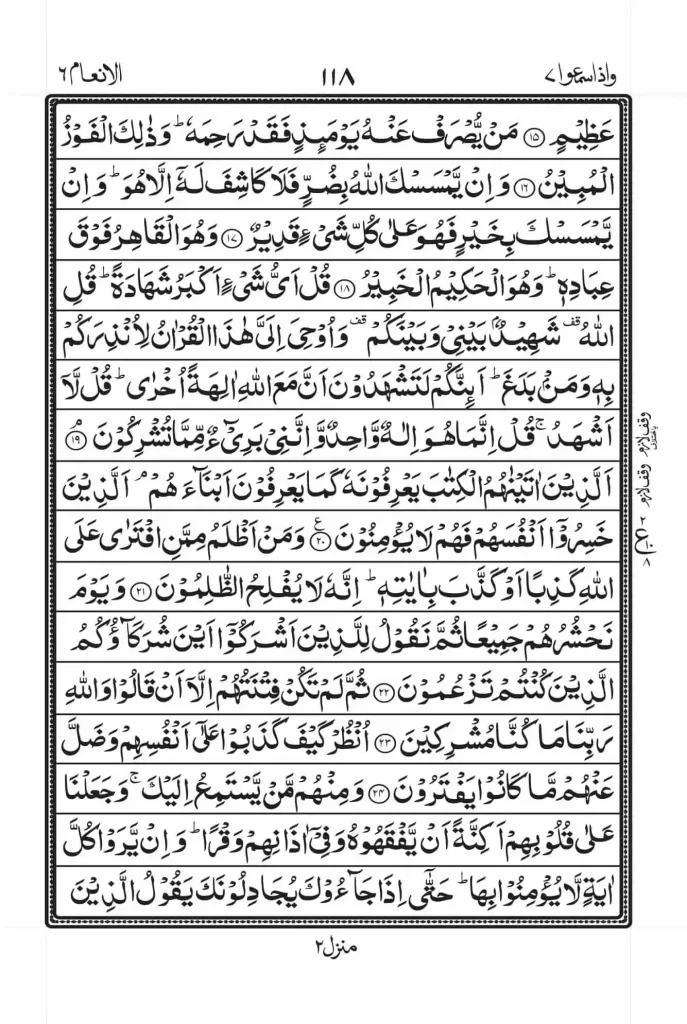 واذاسمعوا ٧ ١١٨ الانعام ٦
عَظِيْمٍ ۝١٥ مَنْ يُّصْرَفْ عَنْهُ يَوْمَىِٕذٍ فَقَدْ رَحِمَهٗ ؕ وَذٰلِكَ الْفَوْزُ
الْمُبِيْنُ ۝١٦ وَاِنْ يَّمْسَسْكَ اللّٰهُ بِضُرٍّ فَلَا كَاشِفَ لَهٗۤ اِلَّا هُوَ ؕ وَاِنْ
يَّمْسَسْكَ بِخَيْرٍ فَهُوَ عَلٰى كُلِّ شَىْءٍ قَدِيْرٌ ۝١٧ وَهُوَ الْقَاهِرُ فَوْقَ
عِبَادِهٖ ؕ وَهُوَ الْحَكِيْمُ الْخَبِيْرُ ۝١٨ قُلْ اَىُّ شَىْءٍ اَكْبَرُ شَهَادَةً ؕ قُلِ
اللّٰهُ ۙقف شَهِيْدٌۢ بَيْنِىْ وَبَيْنَكُمْ ۙقف وَاُوْحِىَ اِلَىَّ هٰذَا الْقُرْاٰنُ لِاُنْذِرَكُمْ
بِهٖ وَمَنْۢ بَلَغَ ؕ اَىِٕنَّكُمْ لَتَشْهَدُوْنَ اَنَّ مَعَ اللّٰهِ اٰلِهَةً اُخْرٰى ؕ قُلْ لَّاۤ
اَشْهَدُ ۚ قُلْ اِنَّمَا هُوَ اِلٰهٌ وَّاحِدٌ وَّاِنَّنِىْ بَرِىْٓءٌ مِّمَّا تُشْرِكُوْنَ ۘ۝١٩
اَلَّذِيْنَ اٰتَيْنٰهُمُ الْكِتٰبَ يَعْرِفُوْنَهٗ كَمَا يَعْرِفُوْنَ اَبْنَآءَهُمْ ۘ اَلَّذِيْنَ
خَسِرُوْۤا اَنْفُسَهُمْ فَهُمْ لَا يُؤْمِنُوْنَ ۝٢٠ ع وَمَنْ اَظْلَمُ مِمَّنِ افْتَرٰى عَلَى
اللّٰهِ كَذِبًا اَوْ كَذَّبَ بِاٰيٰتِهٖ ؕ اِنَّهٗ لَا يُفْلِحُ الظّٰلِمُوْنَ ۝٢١ وَيَوْمَ
نَحْشُرُهُمْ جَمِيْعًا ثُمَّ نَقُوْلُ لِلَّذِيْنَ اَشْرَكُوْۤا اَيْنَ شُرَكَآؤُكُمُ
الَّذِيْنَ كُنْتُمْ تَزْعُمُوْنَ ۝٢٢ ثُمَّ لَمْ تَكُنْ فِتْنَتُهُمْ اِلَّاۤ اَنْ قَالُوْا وَاللّٰهِ
رَبِّنَا مَا كُنَّا مُشْرِكِيْنَ ۝٢٣ اُنْظُرْ كَيْفَ كَذَبُوْا عَلٰٓى اَنْفُسِهِمْ وَضَلَّ
عَنْهُمْ مَّا كَانُوْا يَفْتَرُوْنَ ۝٢٤ وَمِنْهُمْ مَّنْ يَّسْتَمِعُ اِلَيْكَ ۚ وَجَعَلْنَا
عَلٰى قُلُوْبِهِمْ اَكِنَّةً اَنْ يَّفْقَهُوْهُ وَفِىْۤ اٰذَانِهِمْ وَقْرًا ؕ وَاِنْ يَّرَوْا كُلَّ
اٰيَةٍ لَّا يُؤْمِنُوْا بِهَا ؕ حَتّٰۤى اِذَا جَآءُوْكَ يُجَادِلُوْنَكَ يَقُوْلُ الَّذِيْنَ
وقف لازم
وقف لازم
منزل ٢